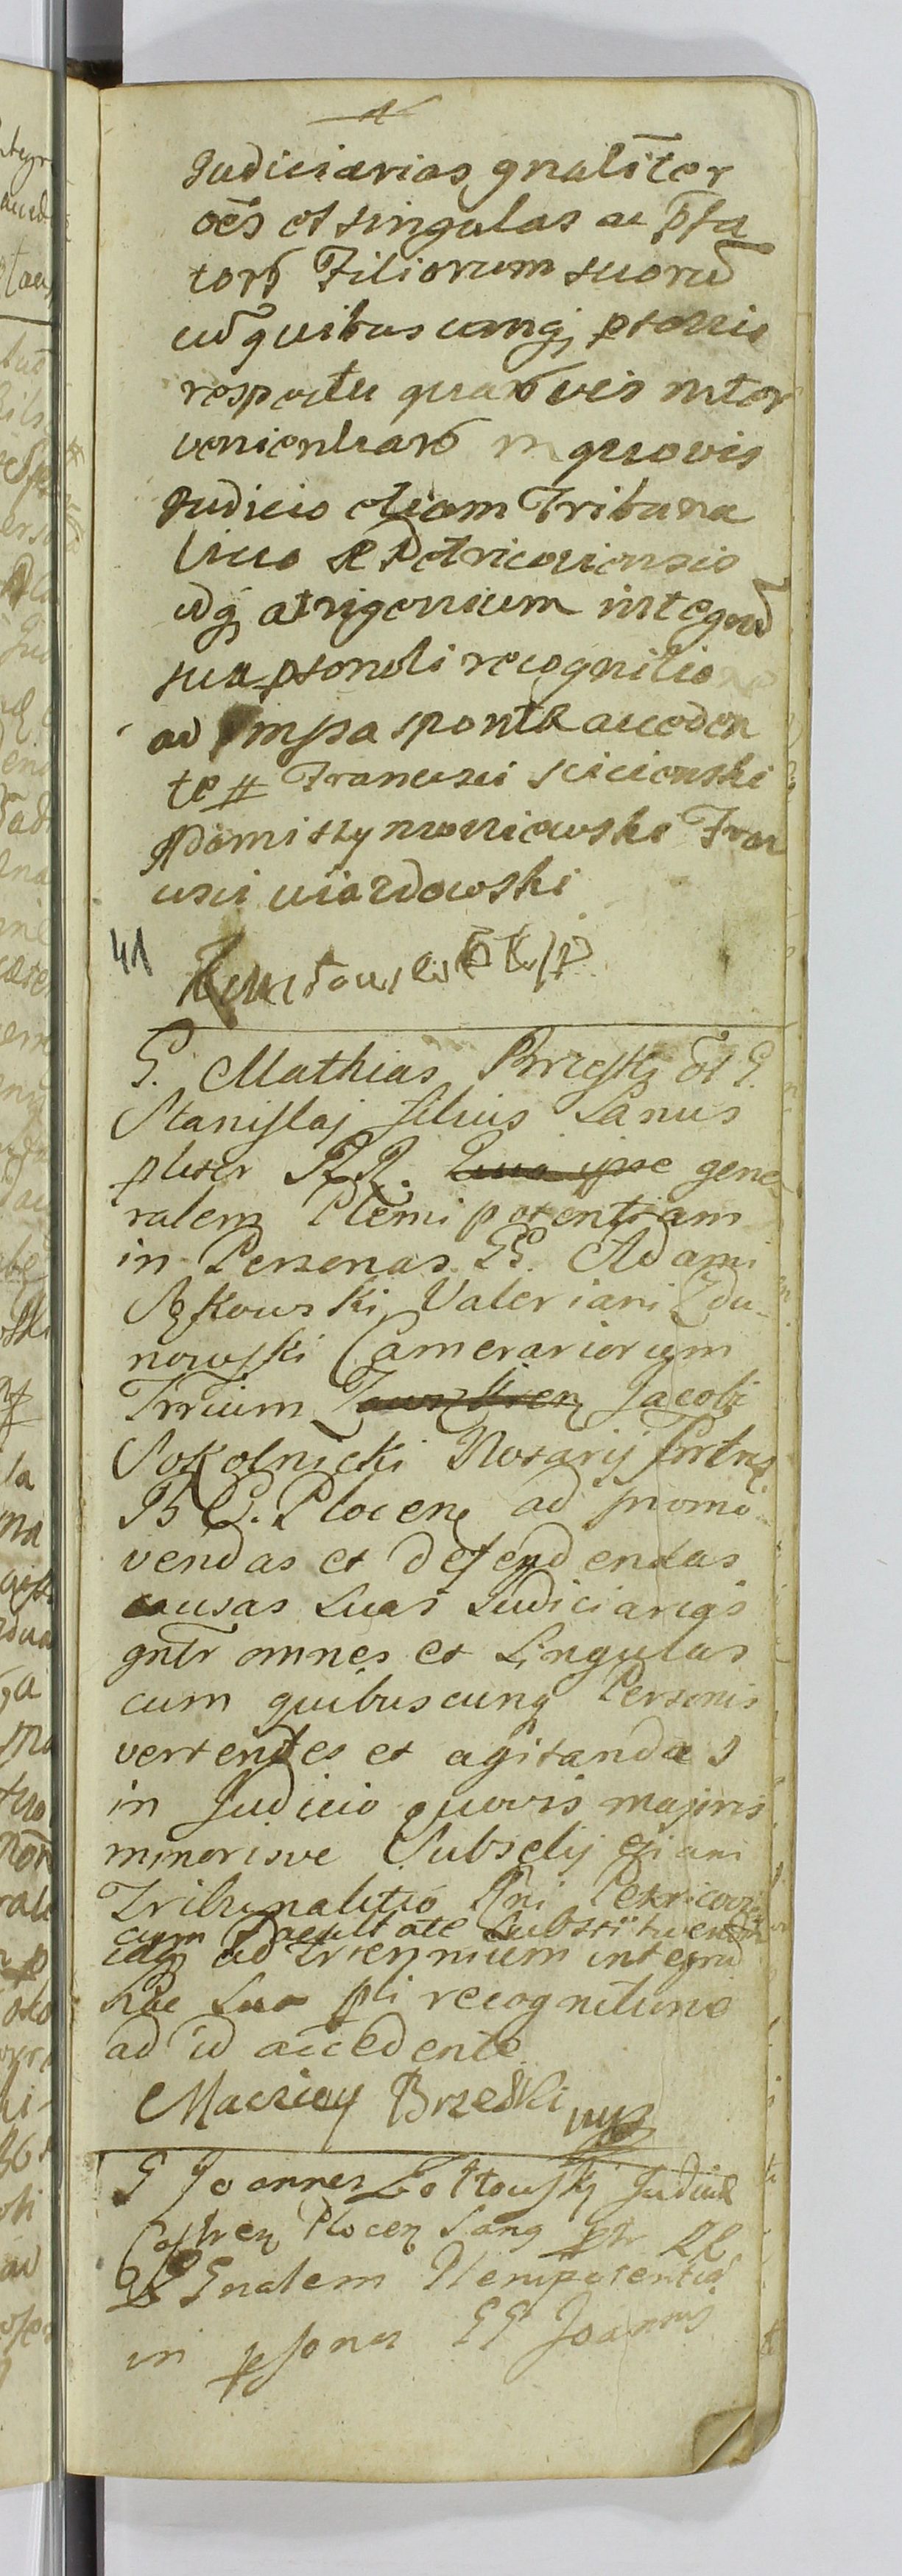 Judiciarias gnaliter
oēs et singulas ac p̄fa
torū Filiorum suorū
cū quibuscunq personis
respectu quarūvis inter
venientiarū in quovis
Judicio etiam Tribuna
litio R Petricoviensis
idq, a trigennium integrū
sua psonali recognitione
ad impa sponte acceden
te # Francisci scicienski
Adami Szymoniewski Fran
cisci
41
G. Mathias Brzeski ol G.
Stanislaj filius Sanus
pluser RR. Sua ipse gene
ralem Pleni potentiam
in Personas GG. Adami
Valeriani Zdu-
nowski Camerariorum
Trrium Jacobi
Sokolnicki Notarij Cstrens
B C. Plocen ad promo
vendas et defendendas
causas Suas Judiciarias
gnlr omnes et Singulas
cum quibuscunq Personis
vertentes et agitandas
in Judicio quovis majoris
minorisve Subselij etiam
Tribunalitio Rni Petricovien
cum facultate Substituendi
idq ad triennium integrū
hac Sua pli recognitione
ad id accedente
Macziey Brzeski mp
G Joannes Zołtowski Judex
Castren Plocen Sang ptr RR
Gnalem Plenipotentiā
in psonas GG Joannis